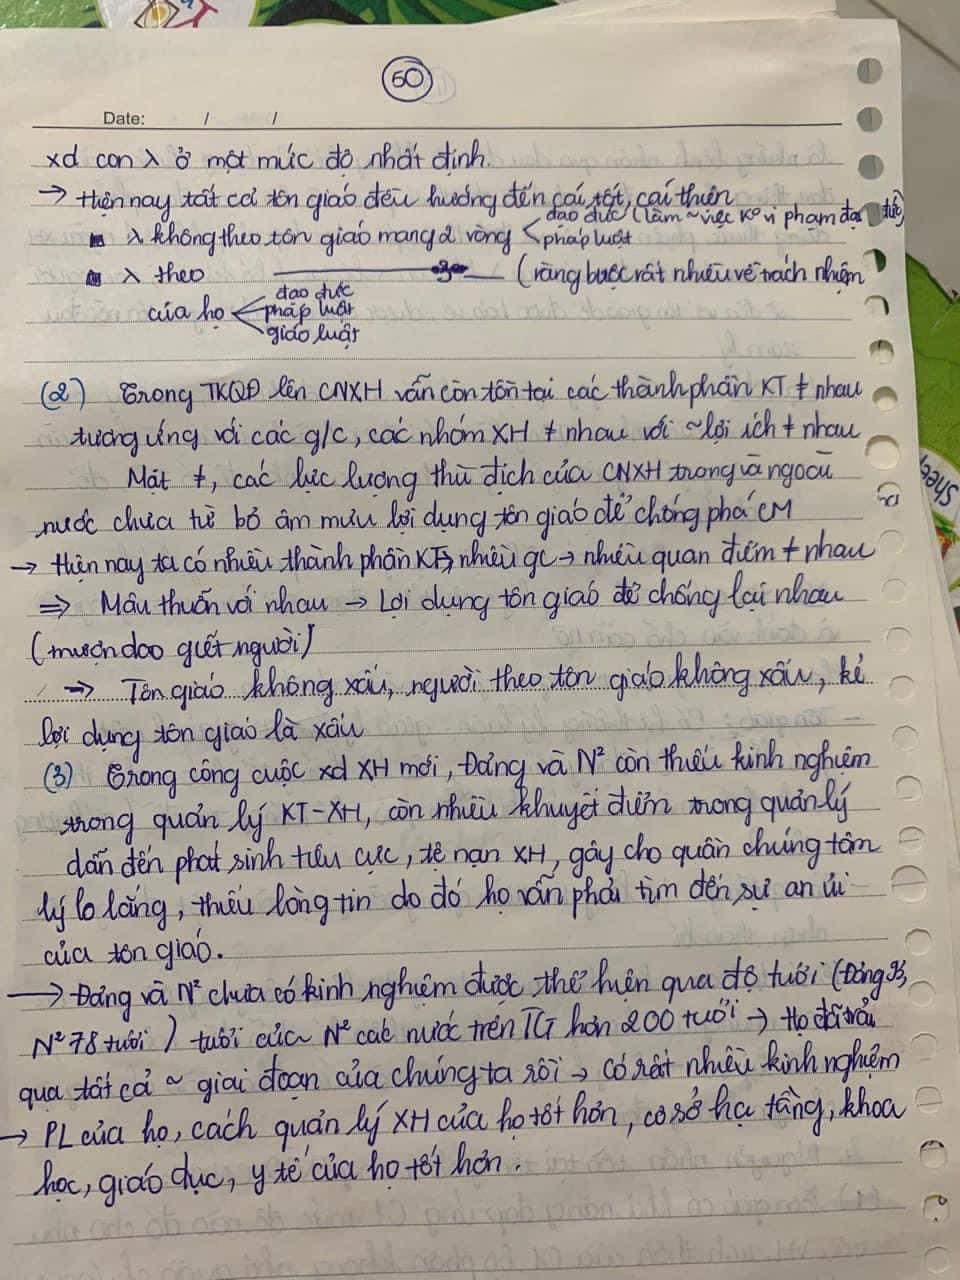 60
Date: / /
xd con λ ở một mức độ nhất định.
→ Hiện nay tất cả tôn giáo đều hướng đến cái tốt, cái thiện
λ không theo tôn giáo mang 2 vòng < đạo đức (làm ~ việc ko vi phạm đạo đức)
pháp luật
λ theo ——— 3 — (ràng buộc rất nhiều về trách nhiệm
của họ < đạo đức
pháp luật
giáo luật
(2) Trong TKQĐ lên CNXH vẫn còn tồn tại các thành phần KT ≠ nhau
tương ứng với các g/c, các nhóm XH ≠ nhau với ~ lợi ích ≠ nhau
Mặt ≠, các lực lượng thù địch của CNXH trong và ngoài
nước chưa từ bỏ âm mưu lợi dụng tôn giáo để chống phá CM
→ Hiện nay ta có nhiều thành phần KT → nhiều gc → nhiều quan điểm ≠ nhau
⇒ Mâu thuẫn với nhau → Lợi dụng tôn giáo để chống lại nhau
(mượn dao giết người)
⇒ Tôn giáo không xấu, người theo tôn giáo không xấu, kẻ
lợi dụng tôn giáo là xấu
(3) Trong công cuộc xd XH mới, Đảng và N² còn thiếu kinh nghiệm
trong quản lý KT-XH, còn nhiều khuyết điểm trong quản lý
dẫn đến phát sinh tiêu cực, tệ nạn XH, gây cho quần chúng tâm
lý lo lắng, thiếu lòng tin do đó họ vẫn phải tìm đến sự an ủi
của tôn giáo.
→ Đảng và N² chưa có kinh nghiệm được thể hiện qua độ tuổi (Đảng 93,
N² 78 tuổi) tuổi của N² các nước trên TG hơn 200 tuổi → Họ đã trải
qua tất cả ~ giai đoạn của chúng ta rồi → có rất nhiều kinh nghiệm
→ PL của họ, cách quản lý XH của họ tốt hơn, cơ sở hạ tầng, khoa
học, giáo dục, y tế của họ tốt hơn.